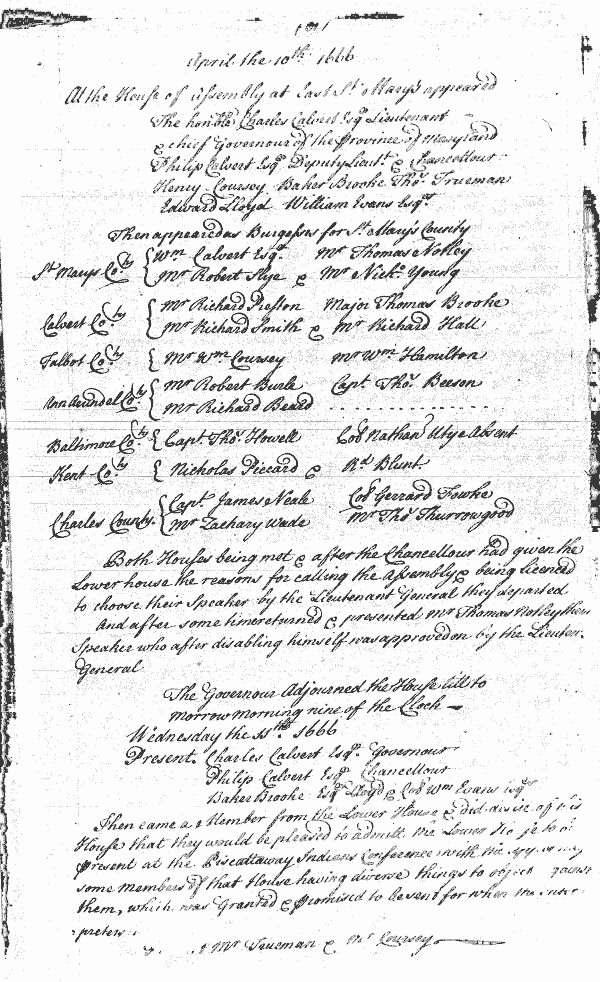 April the 10th. 1666
At the House of Assembly at East St. Marys appeared
The honble Charles Calvert Esqr Lieutenant
& chief Governour of the Province of Maryland
Philip Calvert Esqr Deputy Lieut. & Chancellour
Henry Coursey Baker Brooke Thos. Trueman
Edward Lloyd William Evans Esqrs.
Then appeared as Burgesses for St. Marys County
St Marys Coty { Wm Calvert Esqr. Mr Thomas Notley
{ Mr Robert Slye & Mr Nichs. Young
Calvert Coty { Mr Richard Preston Major Thomas Brooke
{ Mr Richard Smith & Mr Richard Hall
Talbot Coty { Mr Wm Coursey Mr Wm Hamilton
Ann Arundel Coty { Mr Robert Burle Capt. Thos. Beeson
{ Mr Richard Beard
Baltimore Coty { Capt. Thos. Howell Col Nathanl Utye Absent
Kent Coty { Nicholas Piccard & Rd. Blunt.
Charles County. { Capt. James Neale Col Gerrard Fowke
{ Mr Zachary Wade Mr Thos Thurrowgood
Both Houses being met & after the Chancellour had given the
Lower house the reasons for calling the Assembly & being licenced
to choose their Speaker by the Lieutenant General they departed
And after some time returned & presented Mr Thomas Notley their
Speaker who after disabling himself was approved on by the Lieuten.
General
The Governour Adjourned the House till to
morrow morning nine of the Clock —
Wednesday the 11th 1666
Present. Charles Calvert Esqr. Governour
Philip Calvert Esqr Chancellour
Baker Brooke Esqr Lloyd & Col Wm Evans Esqrs
Then came a Member from the Lower House & did desire of this
House that they would be pleased to admitt the Lower House to be
present at the Piscattaway Indians Conference with the
some members of that House having diverse things to object against
them, which was Granted & Promised to be sent for when the Inter
preters
Mr Trueman & Mr Coursey